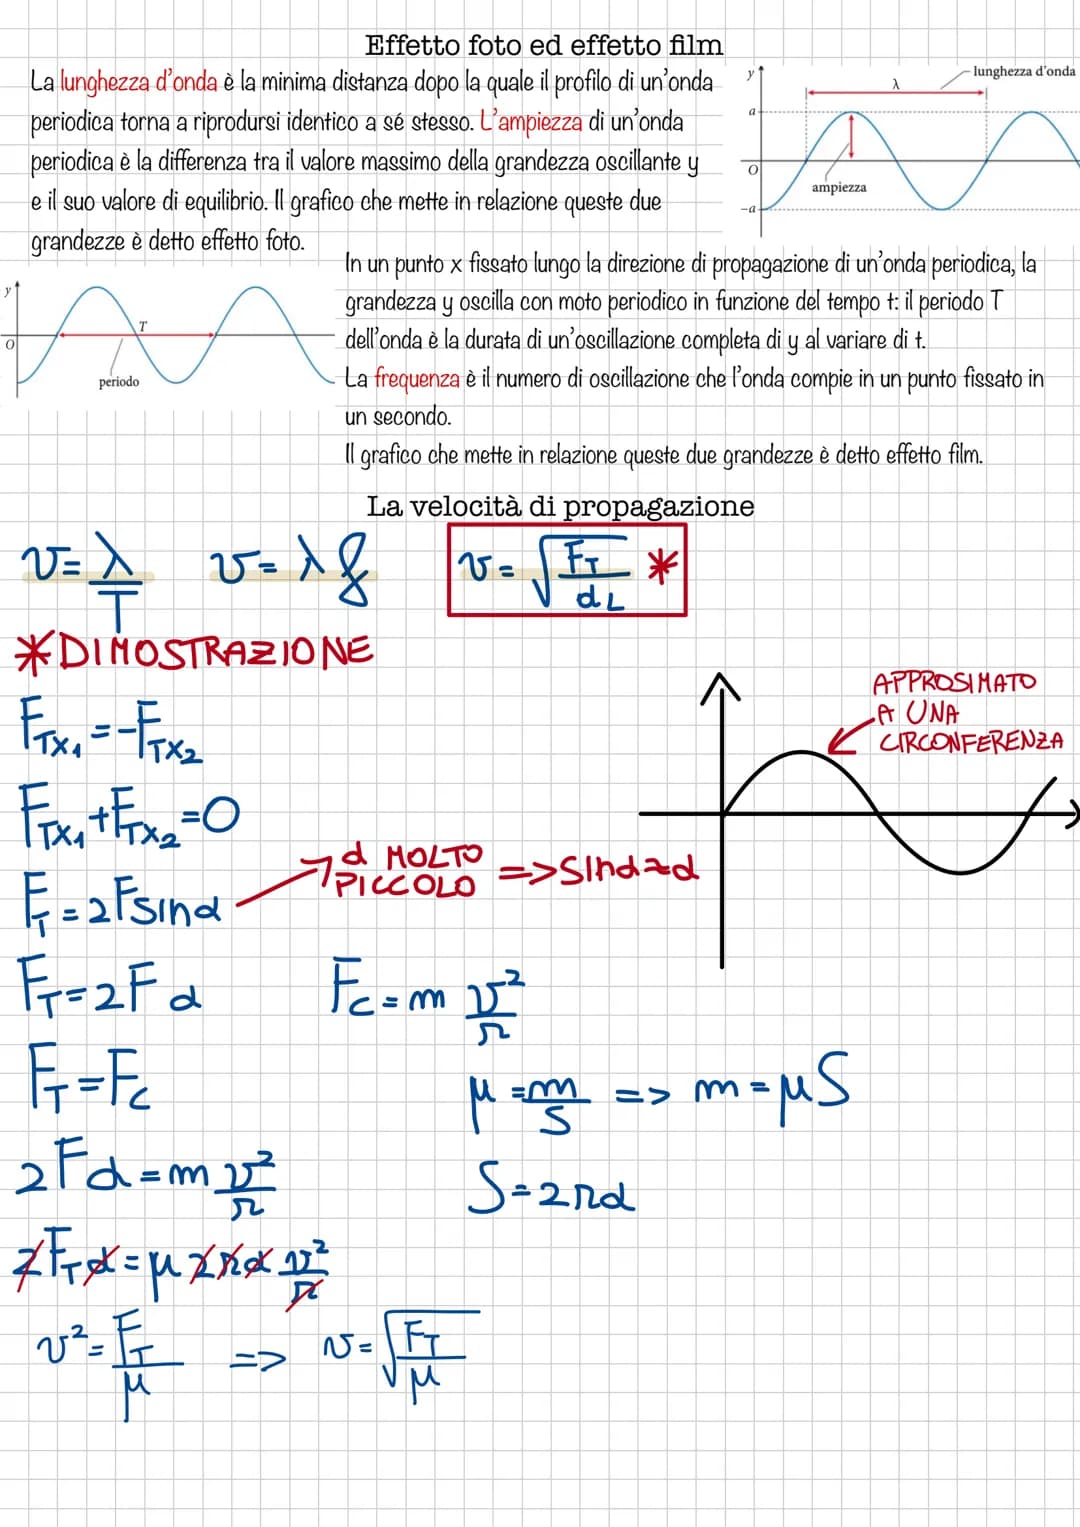 Effetto foto ed effetto film
La lunghezza d'onda è la minima distanza dopo la quale il profilo di un'onda
periodica torna a riprodursi identico a sé stesso. L'ampiezza di un'onda
periodica è la differenza tra il valore massimo della grandezza oscillante y
e il suo valore di equilibrio. Il grafico che mette in relazione queste due
grandezze è detto effetto foto.
y
lunghezza d'onda
λ
a
O
ampiezza
-a
In un punto x fissato lungo la direzione di propagazione di un'onda periodica, la
grandezza y oscilla con moto periodico in funzione del tempo t: il periodo T
dell'onda è la durata di un'oscillazione completa di y al variare di t.
La frequenza è il numero di oscillazione che l'onda compie in un punto fissato in
un secondo.
Il grafico che mette in relazione queste due grandezze è detto effetto film.
y
T
O
periodo
La velocità di propagazione
v = λ/T v = λf v = √(F_T/d_L) *
*DIMOSTRAZIONE
F_TX1 = -F_TX2
F_TX1 + F_TX2 = 0
F_T = 2F sin α
α MOLTO PICCOLO => sin α ≈ α
APPROSIMATO
A UNA
CIRCONFERENZA
F_T = 2F α F_C = m v²/r
F_T = F_C μ = m/S => m = μS
2Fα = m v²/r S = 2rα
2F_T α = μ 2rα v²/r
v² = F_T/μ => v = √(F_T/μ)